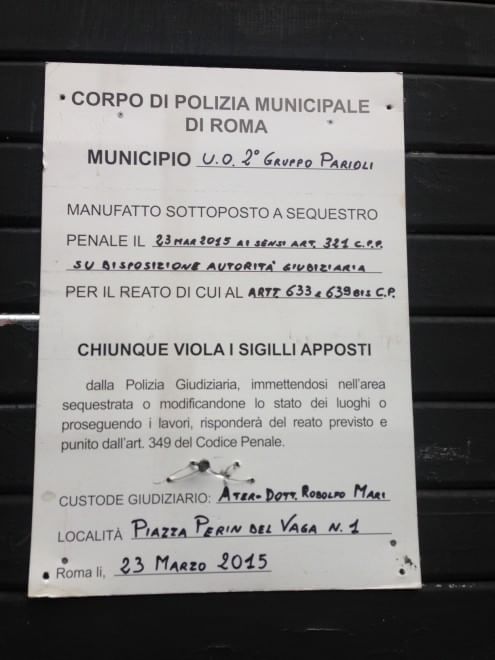 CORPO DI POLIZIA MUNICIPALE
DI ROMA
MUNICIPIO U.O. 2° GRUPPO PARIOLI
MANUFATTO SOTTOPOSTO A SEQUESTRO
PENALE IL 23 MAR 2015 AI SENSI ART. 321 C.P.P.
SU DISPOSIZIONE AUTORITÀ GIUDIZIARIA
PER IL REATO DI CUI AL ARTT. 633 E 639 BIS C.P.
CHIUNQUE VIOLA I SIGILLI APPOSTI
dalla Polizia Giudiziaria, immettendosi nell'area
sequestrata o modificandone lo stato dei luoghi o
proseguendo i lavori, risponderà del reato previsto e
punito dall'art. 349 del Codice Penale.
CUSTODE GIUDIZIARIO: ATER-DOTT. RODOLFO MARI
LOCALITÀ PIAZZA PERIN DEL VAGA N. 1
Roma li, 23 MARZO 2015